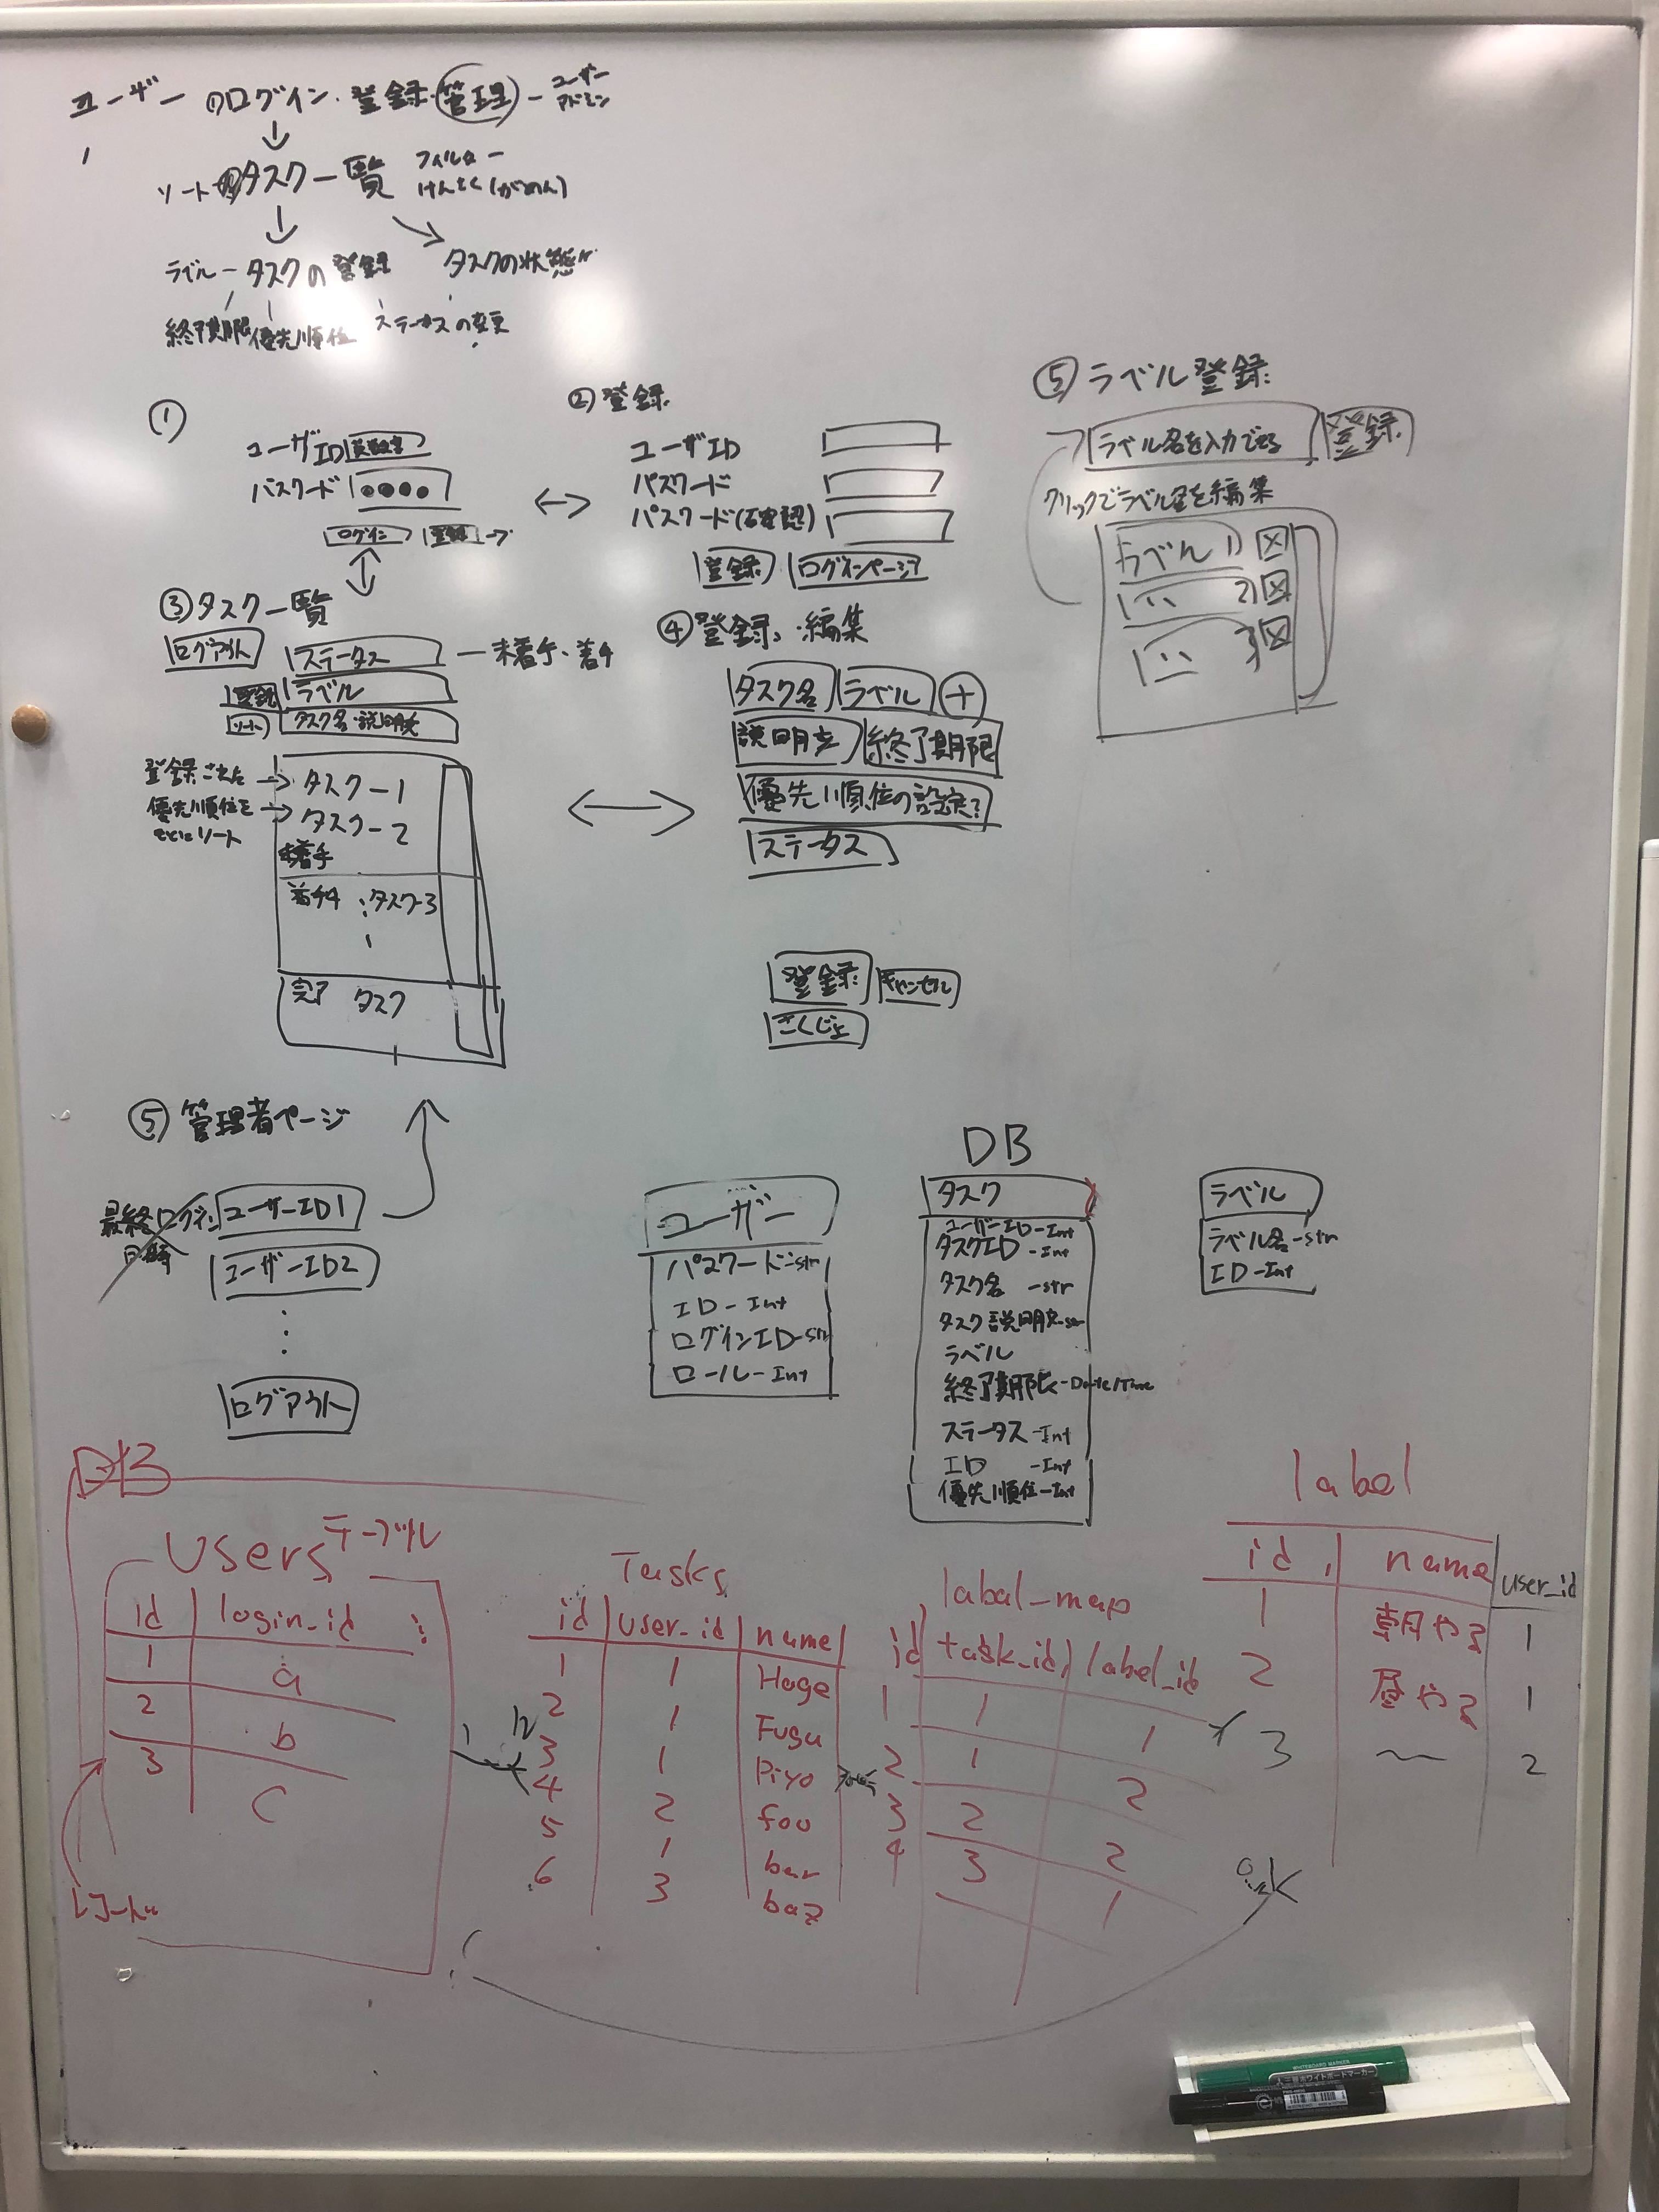 ユーザーのログイン・登録・管理 - ユーザー
アドミン
ソート タスク一覧 フィルター
けんさく(がめん)
ラベル - タスクの登録 タスクの状態
終了期限 優先順位 ステータスの変更
①
ユーザID 英数字
パスワード
ログイン 登録
②登録
ユーザID
パスワード
パスワード(確認)
登録 ログインページ
⑤ラベル登録
ラベル名を入力できる 登録
クリックでラベル名を編集
ラベル 1)
〃 2)
〃 3)
③タスク一覧
ログアウト ステータス - 未着手・着手
登録 ラベル
ソート タスク名・説明文
登録 タスクー1
優先順位を タスクー2
もとにソート
未着手
着手中 タスク-3
完了 タスク
④登録・編集
タスク名 ラベル +
説明文 終了期限
優先順位の設定?
ステータス
登録 キャンセル
さくじょ
⑤管理者ページ
最終ログイン
日時
ユーザーID1
ユーザーID2
ログアウト
DB
ユーザー
パスワード-str
ID-Int
ログインID-str
ロール-Int
タスク
ユーザーID-Int
タスクID-Int
タスク名-str
タスク説明文-str
ラベル
終了期限-Date/Time
ステータス-Int
ID-Int
優先順位-Int
ラベル
ラベル名-str
ID-Int
DB
Usersテーブル
id login_id
1 a
2 b
3 c
レコード
Tasks
id user_id name
1 1 Hoge
2 1 Fugu
3 1 Piyo
4 2 foo
5 1 bar
6 3 baz
1 n
label_map
id task_id label_id
1 1 1
2 1 2
3 2 2
4 3 1
label
id name user_id
1 朝やる 1
2 昼やる 1
3 〜 2
WHITEBOARD MARKER
ホワイトボードマーカー